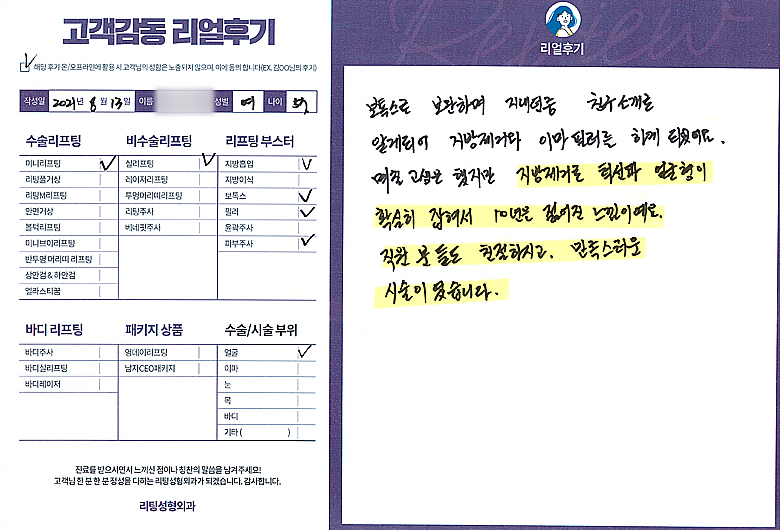 고객감동 리얼후기
해당 후기 온/오프라인에 활용 시 고객님의 성함은 노출되지 않으며, 이에 동의 합니다(EX. 김OO님의 후기)
작성일 2021년 8월 13일 이름 성별 여 나이
수술리프팅
미니리프팅
리팅풀거상
리팅M리프팅
안면거상
볼턱리프팅
미니브이리프팅
반투명 머리띠 리프팅
상안검 & 하안검
엘라스티꿈
비수술리프팅
실리프팅
레이저리프팅
투명머리띠리프팅
리팅주사
베네핏주사
리프팅 부스터
지방흡입
지방이식
보톡스
필러
윤곽주사
피부주사
바디 리프팅
바디주사
바디실리프팅
바디레이저
패키지 상품
영데이리프팅
남자CEO패키지
수술/시술 부위
얼굴
이마
눈
목
바디
기타 ( )
진료를 받으시면서 느끼신 점이나 칭찬의 말씀을 남겨주세요!
고객님 한 분 한 분 정성을 다하는 리팅성형외과가 되겠습니다. 감사합니다.
리팅성형외과
Review
리얼후기
보톡스로 보단하며 지내던중 친구소개로
알게되어 지방제거와 이마필러를 하게 되었어요.
며칠 고생은 했지만 지방제거를 하신과 얼굴형이
확실히 잡혀서 10년은 젊어진 느낌이예요.
직원 분들도 친절하시고, 만족스러운
시술이였습니다.